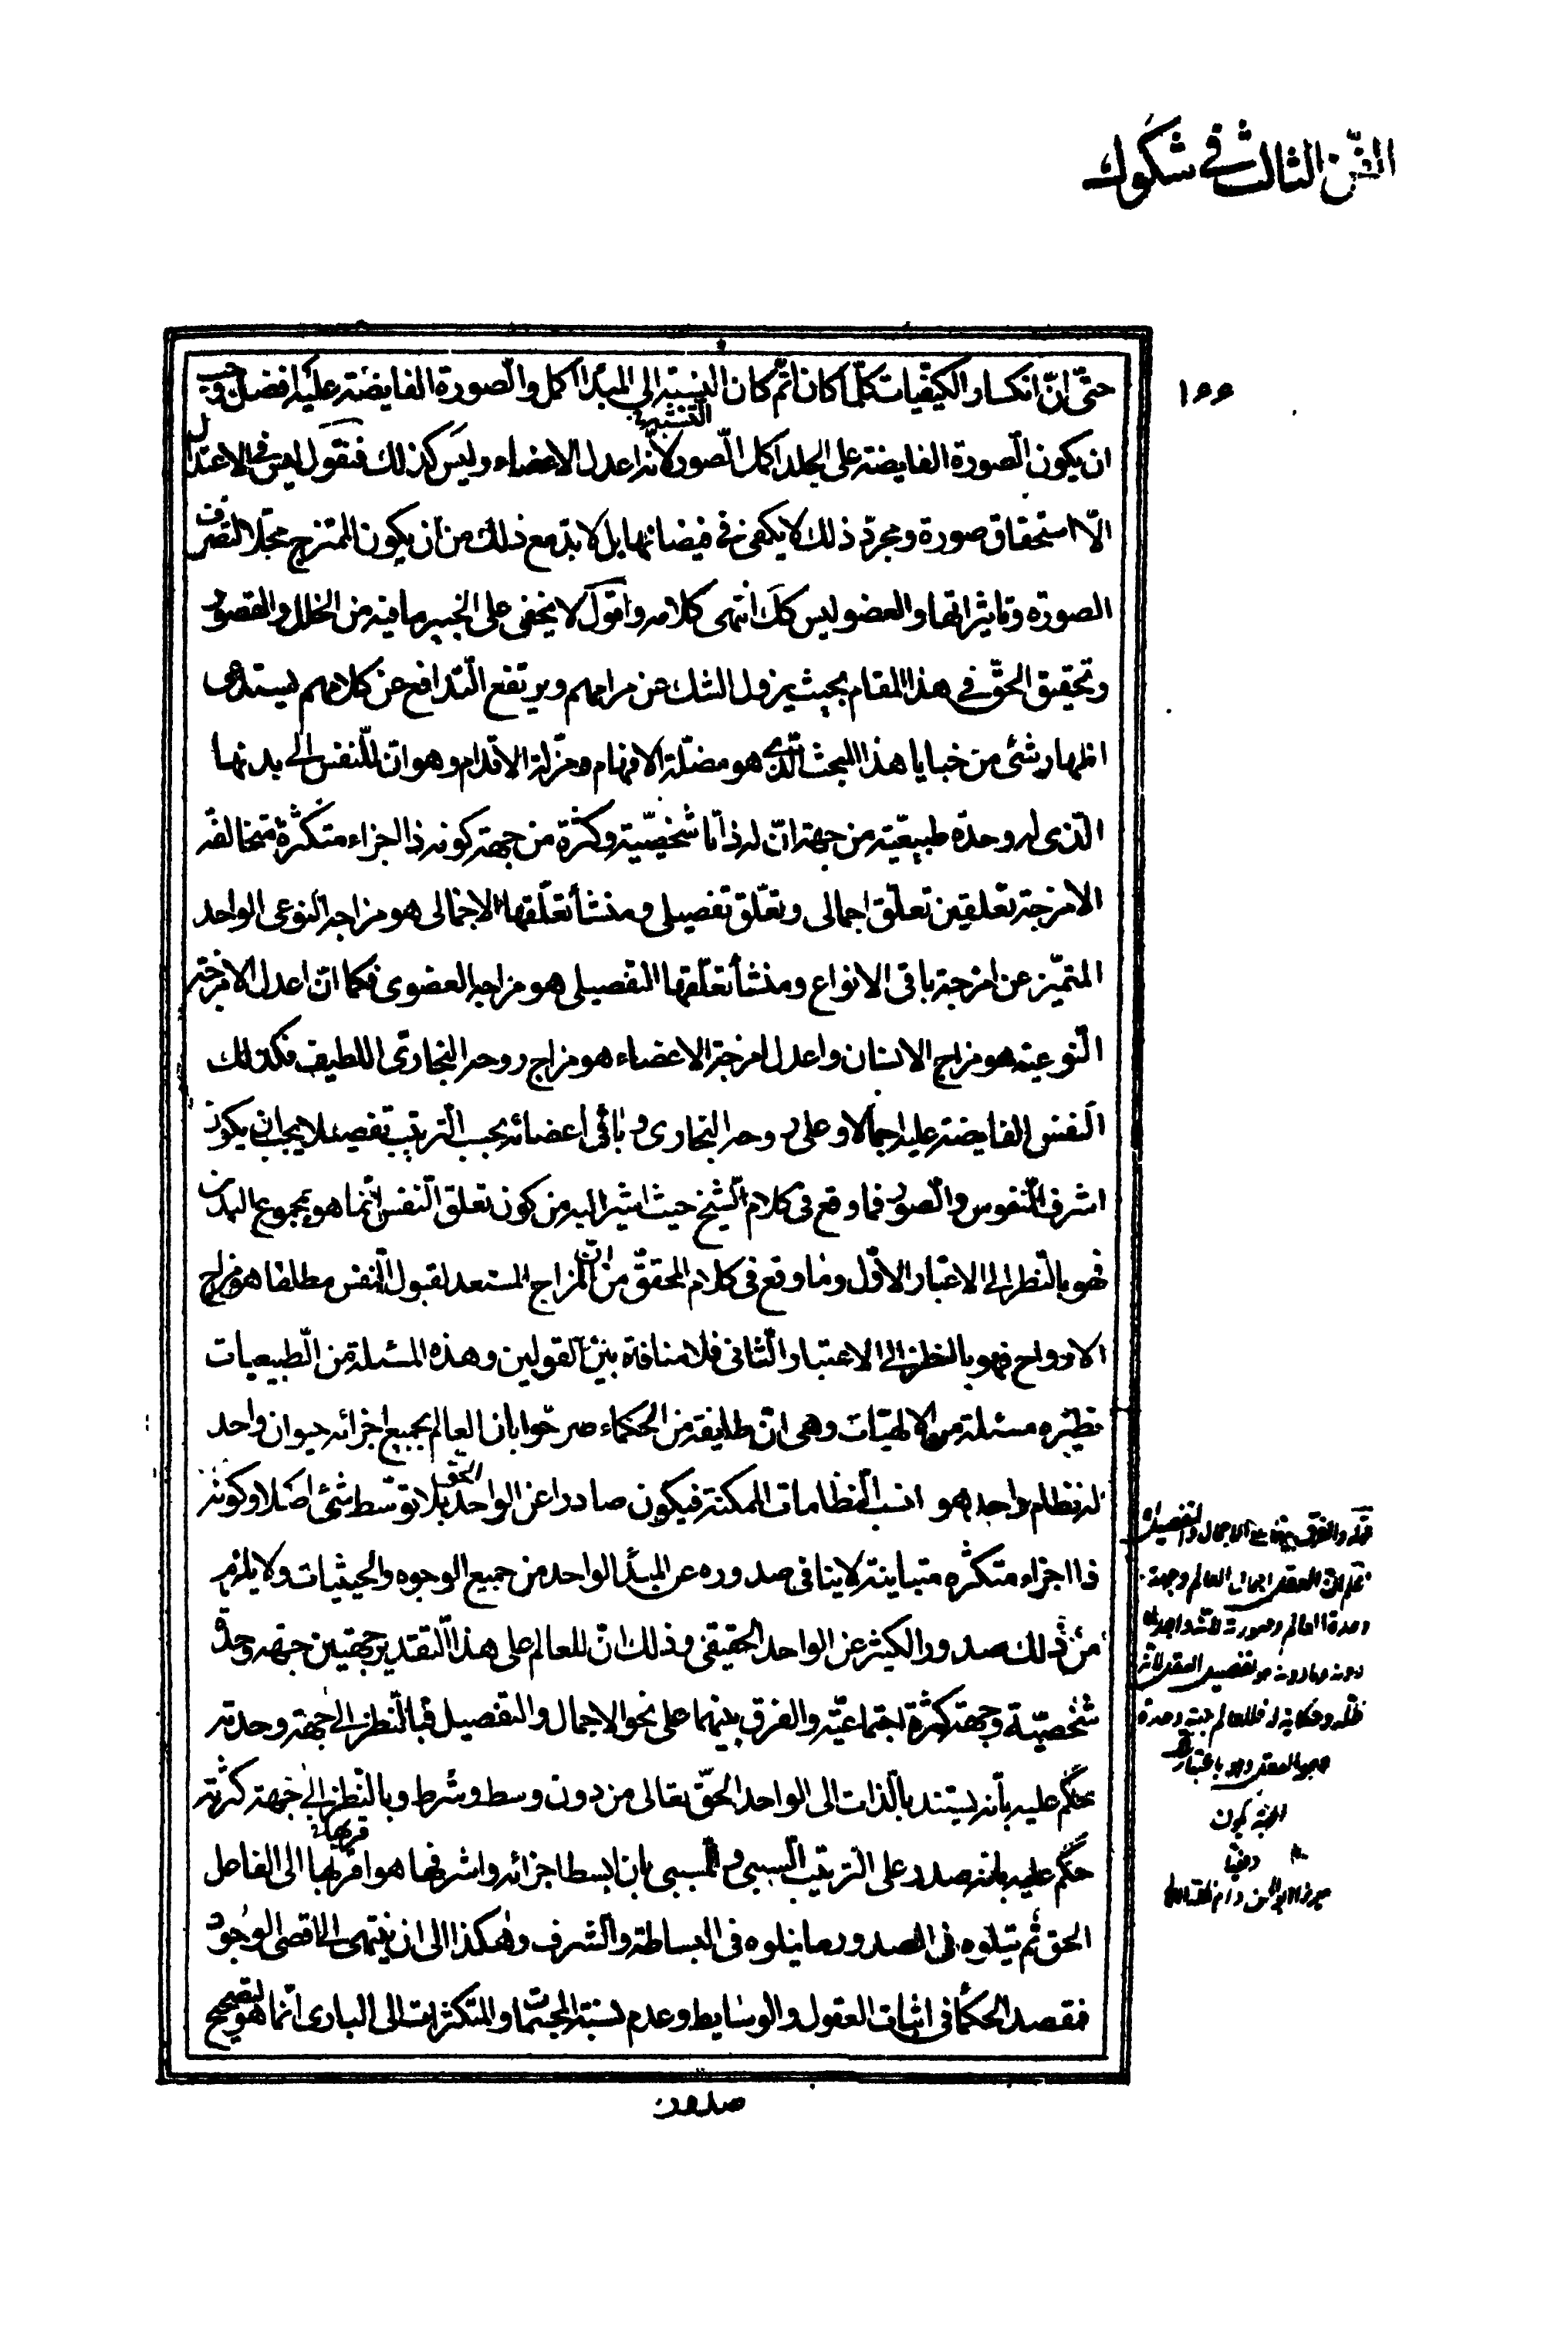 الفن الثالث في شكوك
١٦٦
حتى ان انكسار الكيفيات كلما كان اتم كان النسبة الى المبدأ اكمل والصورة الفايضة عليه افضل فيجب
التشبه
ان يكون الصورة الفايضة على الجلد اكمل الصور لانه اعدل الاعضاء وليس كذلك فنقول ليس فى الاعتدال
الّا استحقاق صورة ومجرد ذلك لا يكفى فى فيضانها بل لا بد مع ذلك من ان يكون الممتزج محلا لتصرف
الصورة وتاثيراتها والعضو ليس كك انتهى كلامه واقول لا يخفى على الخبير ما فيه من الخلل والقصور
وتحقيق الحق في هذا المقام بحيث يزول الشك عن مرامهم ويرتفع التدافع عن كلامهم يستدعى
اظهار شئ من خبايا هذا المبحث الذى هو مضلة الافهام ومزلة الاقدام وهو ان للنفس الى بدنها
الذى له وحدة طبيعية من جهة ان له ذاتا شخصية وكثرة من جهة كونه ذا اجزاء متكثرة متخالفة
الامزجة تعلقين تعلق اجمالى وتعلق تفصيلى ومنشأ تعلقها الاجمالى هو مزاجه النوعى الواحد
المتميز عن امزجة باقى الانواع ومنشأ تعلقها التفصيلى هو مزاجه العضوى فكما ان اعدل الامزجة
النوعية هو مزاج الانسان واعدل امزجة الاعضاء هو مزاج روحه البخارى اللطيف فكذلك
النفس الفايضة عليه اجمالا وعلى روحه البخارى وباقى اعضائه بحسب الترتيب تفصيلا يجب ان يكون
اشرف النفوس والصور فما وقع فى كلام الشيخ حيث اشير اليه من كون تعلق النفس انما هو بمجموع البدن
فهو بالنظر الى الاعتبار الاول وما وقع فى كلام المحقق من ان المزاج المستعد لقبول النفس مطلقا هو مزاج
الارواح فهو بالنظر الى الاعتبار الثانى فلا منافاة بين القولين وهذه المسئلة من الطبيعيات
نظيره مسئلة من الالهيّات وهى ان طايفة من الحكماء صرحوا بان العالم بجميع اجزائه حيوان واحد
له نظام واحد هو انسب النظامات الممكنة فيكون صادرا عن الواحد الحق بلا توسط شئ اصلا وكونه
ذا اجزاء متكثره متباينة لا ينافى صدوره عن المبدأ الواحد من جميع الوجوه والحيثيات ولا يلزم
من ذلك صدور الكثير عن الواحد الحقيقى وذلك ان للعالم على هذا التقدير جهتين جهة وحدة
شخصيّة وجهة كثرة اجتماعيّة والفرق بينهما على نحو الاجمال والتفصيل فبالنظر الى جهة وحدته
حكم عليه بأنه يستند بالذات الى الواحد الحق تعالى من دون وسط وشرط وبالنظر الى جهة كثرته
حكم عليه بانه صدر على الترتيب السببى والمسببى بان ابسط اجزائه واشرفها هو اقربها الى الفاعل
الحق ثم يتلوه فى الصدور ما يتلوه فى البساطة والشرف وهكذا الى ان ينتهى الى اقصى الوجود
فمقصد الحكما فى اثبات العقول والوسايط وعدم نسبة المجتمعات والمتكثرات الى البارى انما هو لتصحيح
صدور
قوله والفرق بينهما على الاجمال والتفصيل
العقل اجمال العالم وجهة
وحدة العالم وصورة
دونه وما دونه هو تفصيل العقل لانه
ظله وحكاية له فللعالم جهة وحدة
هو العقل وهو باعتبار
ميرزا ابو الحسن دام